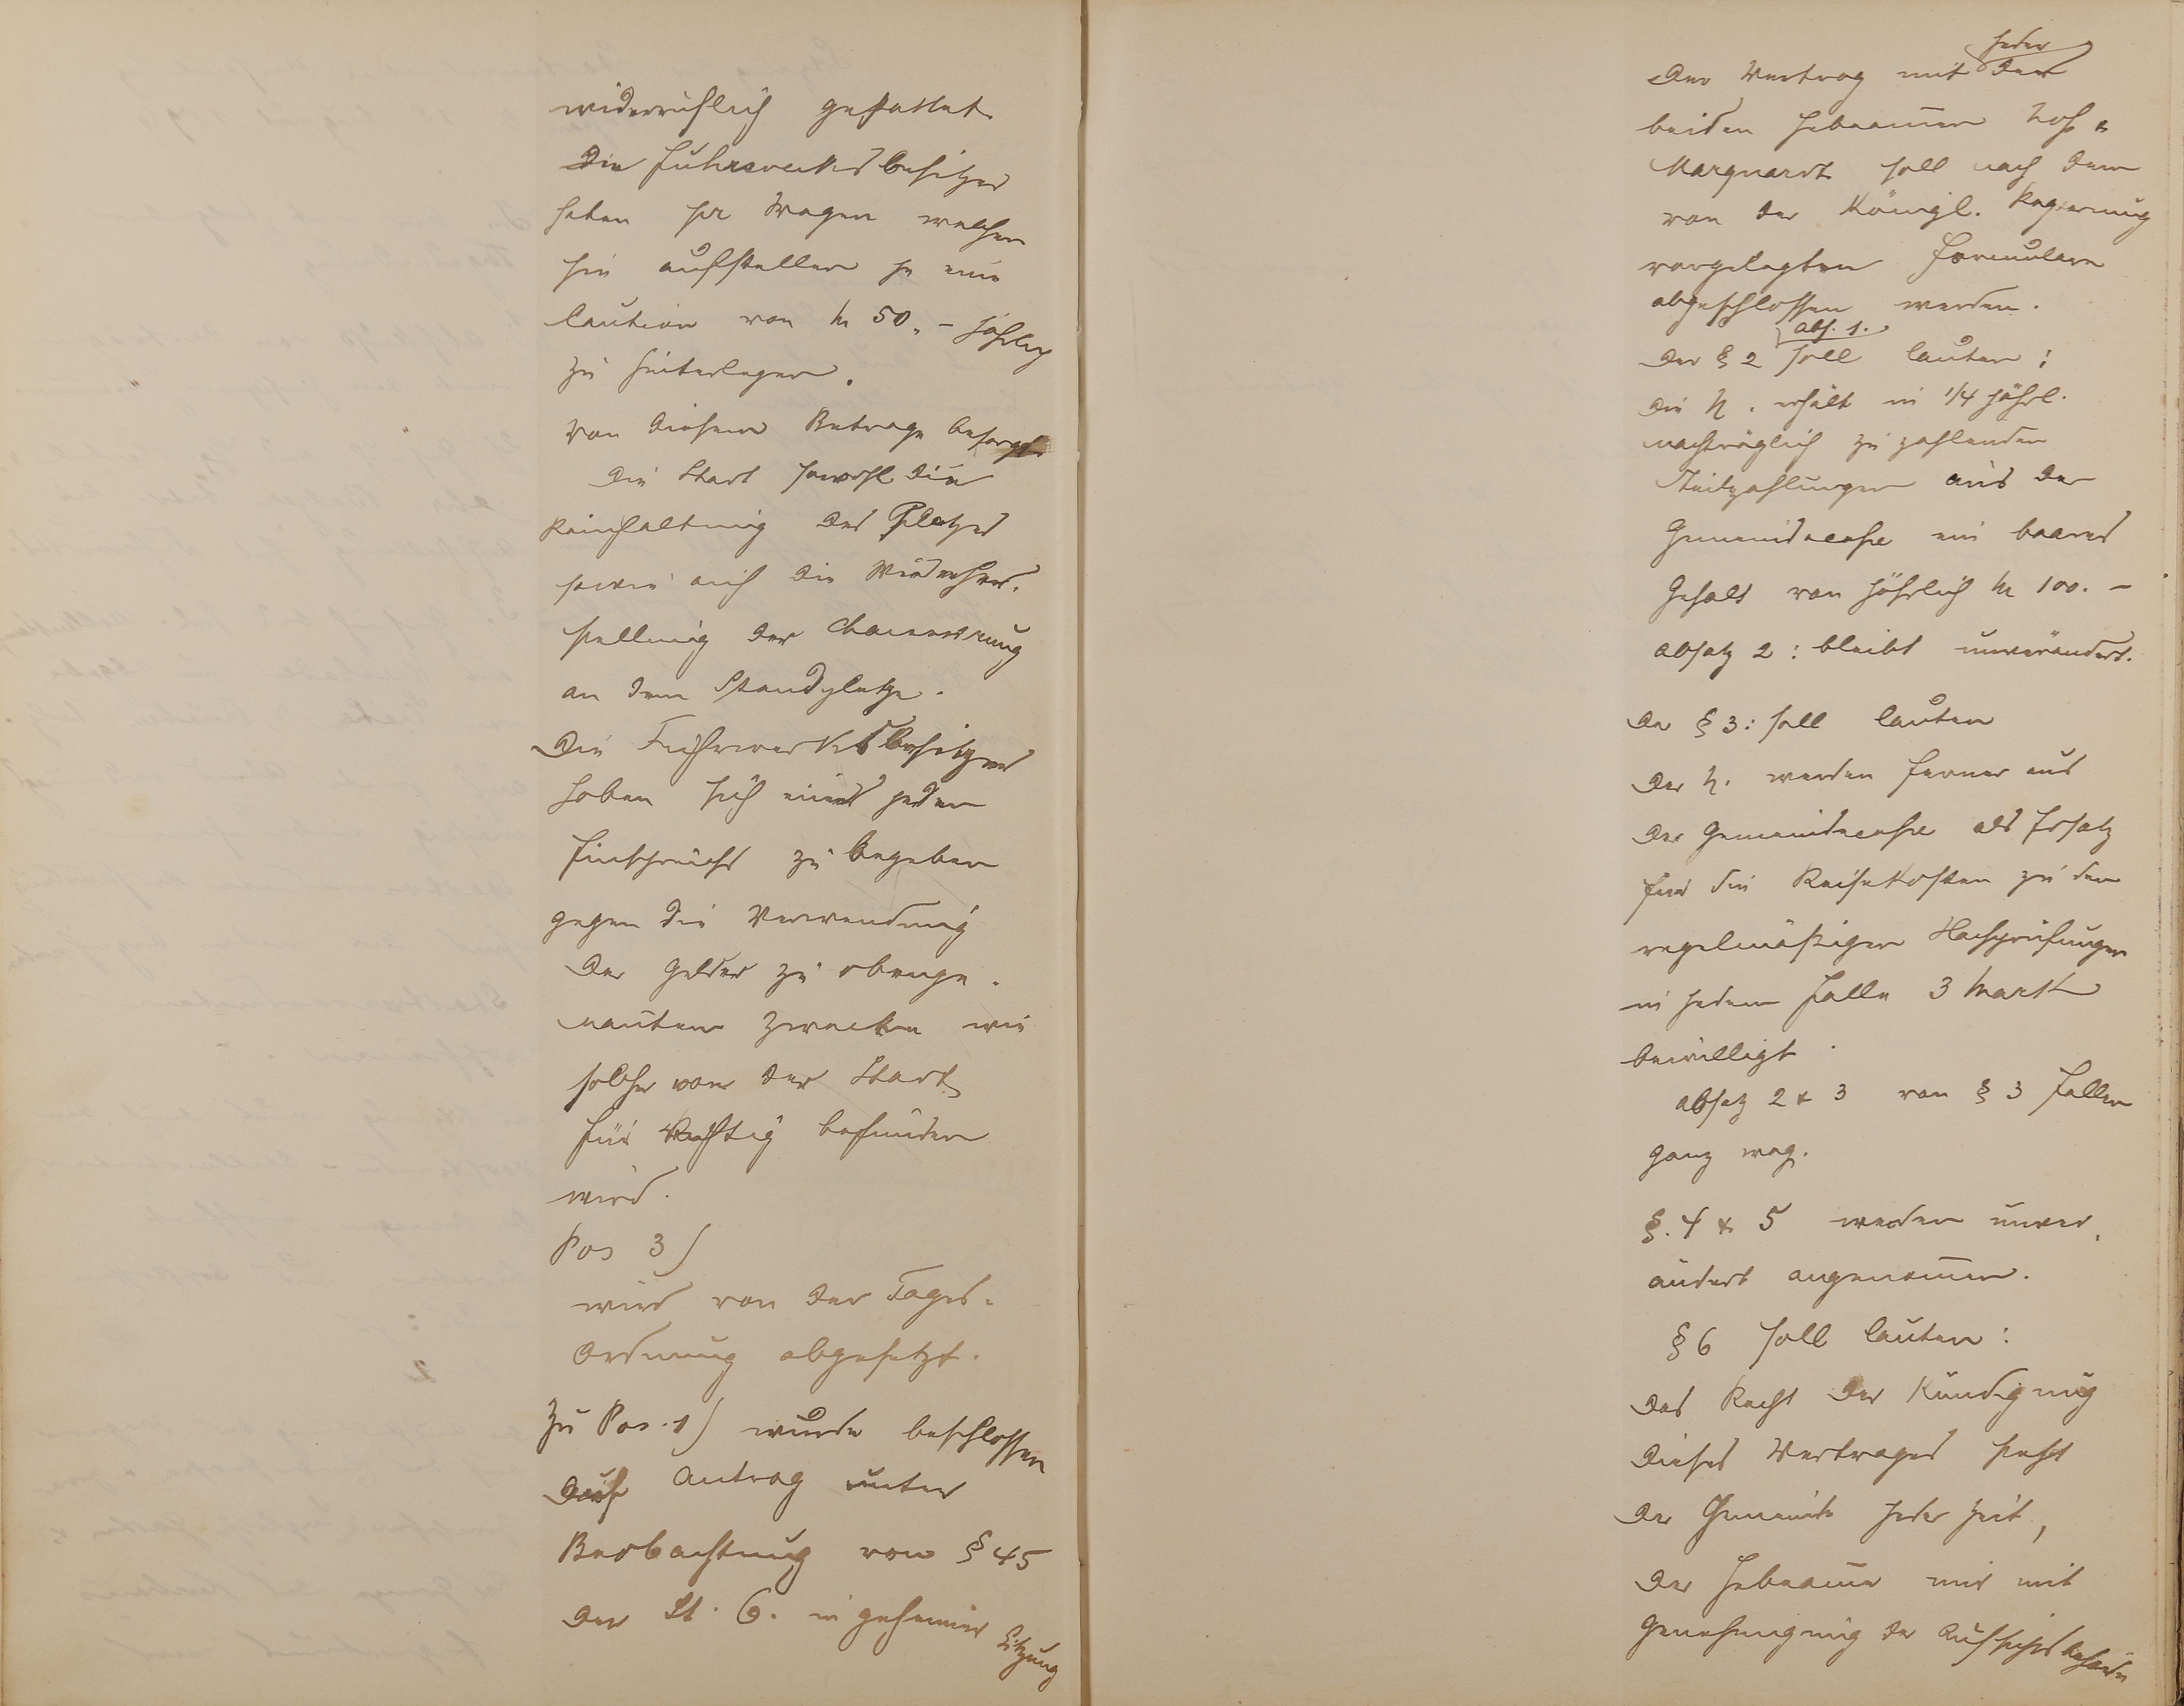 widerruflich gestattet.
Die Fuhrwerksbesitzer
haben pr Wagen welchen
sie aufstellen je eine
Caution von M 50.– jährlich
zu hinterlegen.
Von diesem Betrage besorgt
die Stadt sowohl die
Reinhaltung des Platzes
sowie auch die Wiederher-
stellung der Chaussirung
an dem Standplatze.
Die Fuhrwerksbesitzer
haben sich eines jeden
Einspruchs zu begeben
gegen die Verwendung
der Gelder zu obenge-
nanten Zwecken wie
solcher von der Stadt
für richtig befunden
wird.
Pos 3)
wird von der Tages-
Ordnung abgesetzt.
Zu Pos. 1) wurde beschlossen
Auf Antrag unter
Beobachtung von § 45
der St. O. in geheimer Sitzung
Der Vertrag mit jeder der
beiden Hebeammen Hofs &
Marquardt soll nach dem
von der Königl. Regierung
vorgelegten Formulare
abgeschlossen werden.
Der § 2 Abs. 1. soll lauten:
Die H. erhält in 1/4 jährl.
nachträglich zu zahlenden
Theilzahlungen aus der
Gemeindecasse ein baares
Gehalt von jährlich M 100.–
Absatz 2: bleibt unverändert.
Der § 3: soll lauten
Der H. werden ferner aus
der Gemeindecasse als Ersatz
für die Reisekosten zu den
regelmäßigen Nachprüfungen
in jedem Falle 3 Mark
bewilligt.
Absatz 2 & 3 von § 3 fallen
ganz weg.
§. 4 & 5 werden unver-
ändert angenommen.
§ 6 soll lauten:
Das Recht der Kündigung
dieses Vertrages steht
der Gemeinde jeder Zeit,
der Hebeamme nur mit
Genehmigung der Aufsichtsbehörde